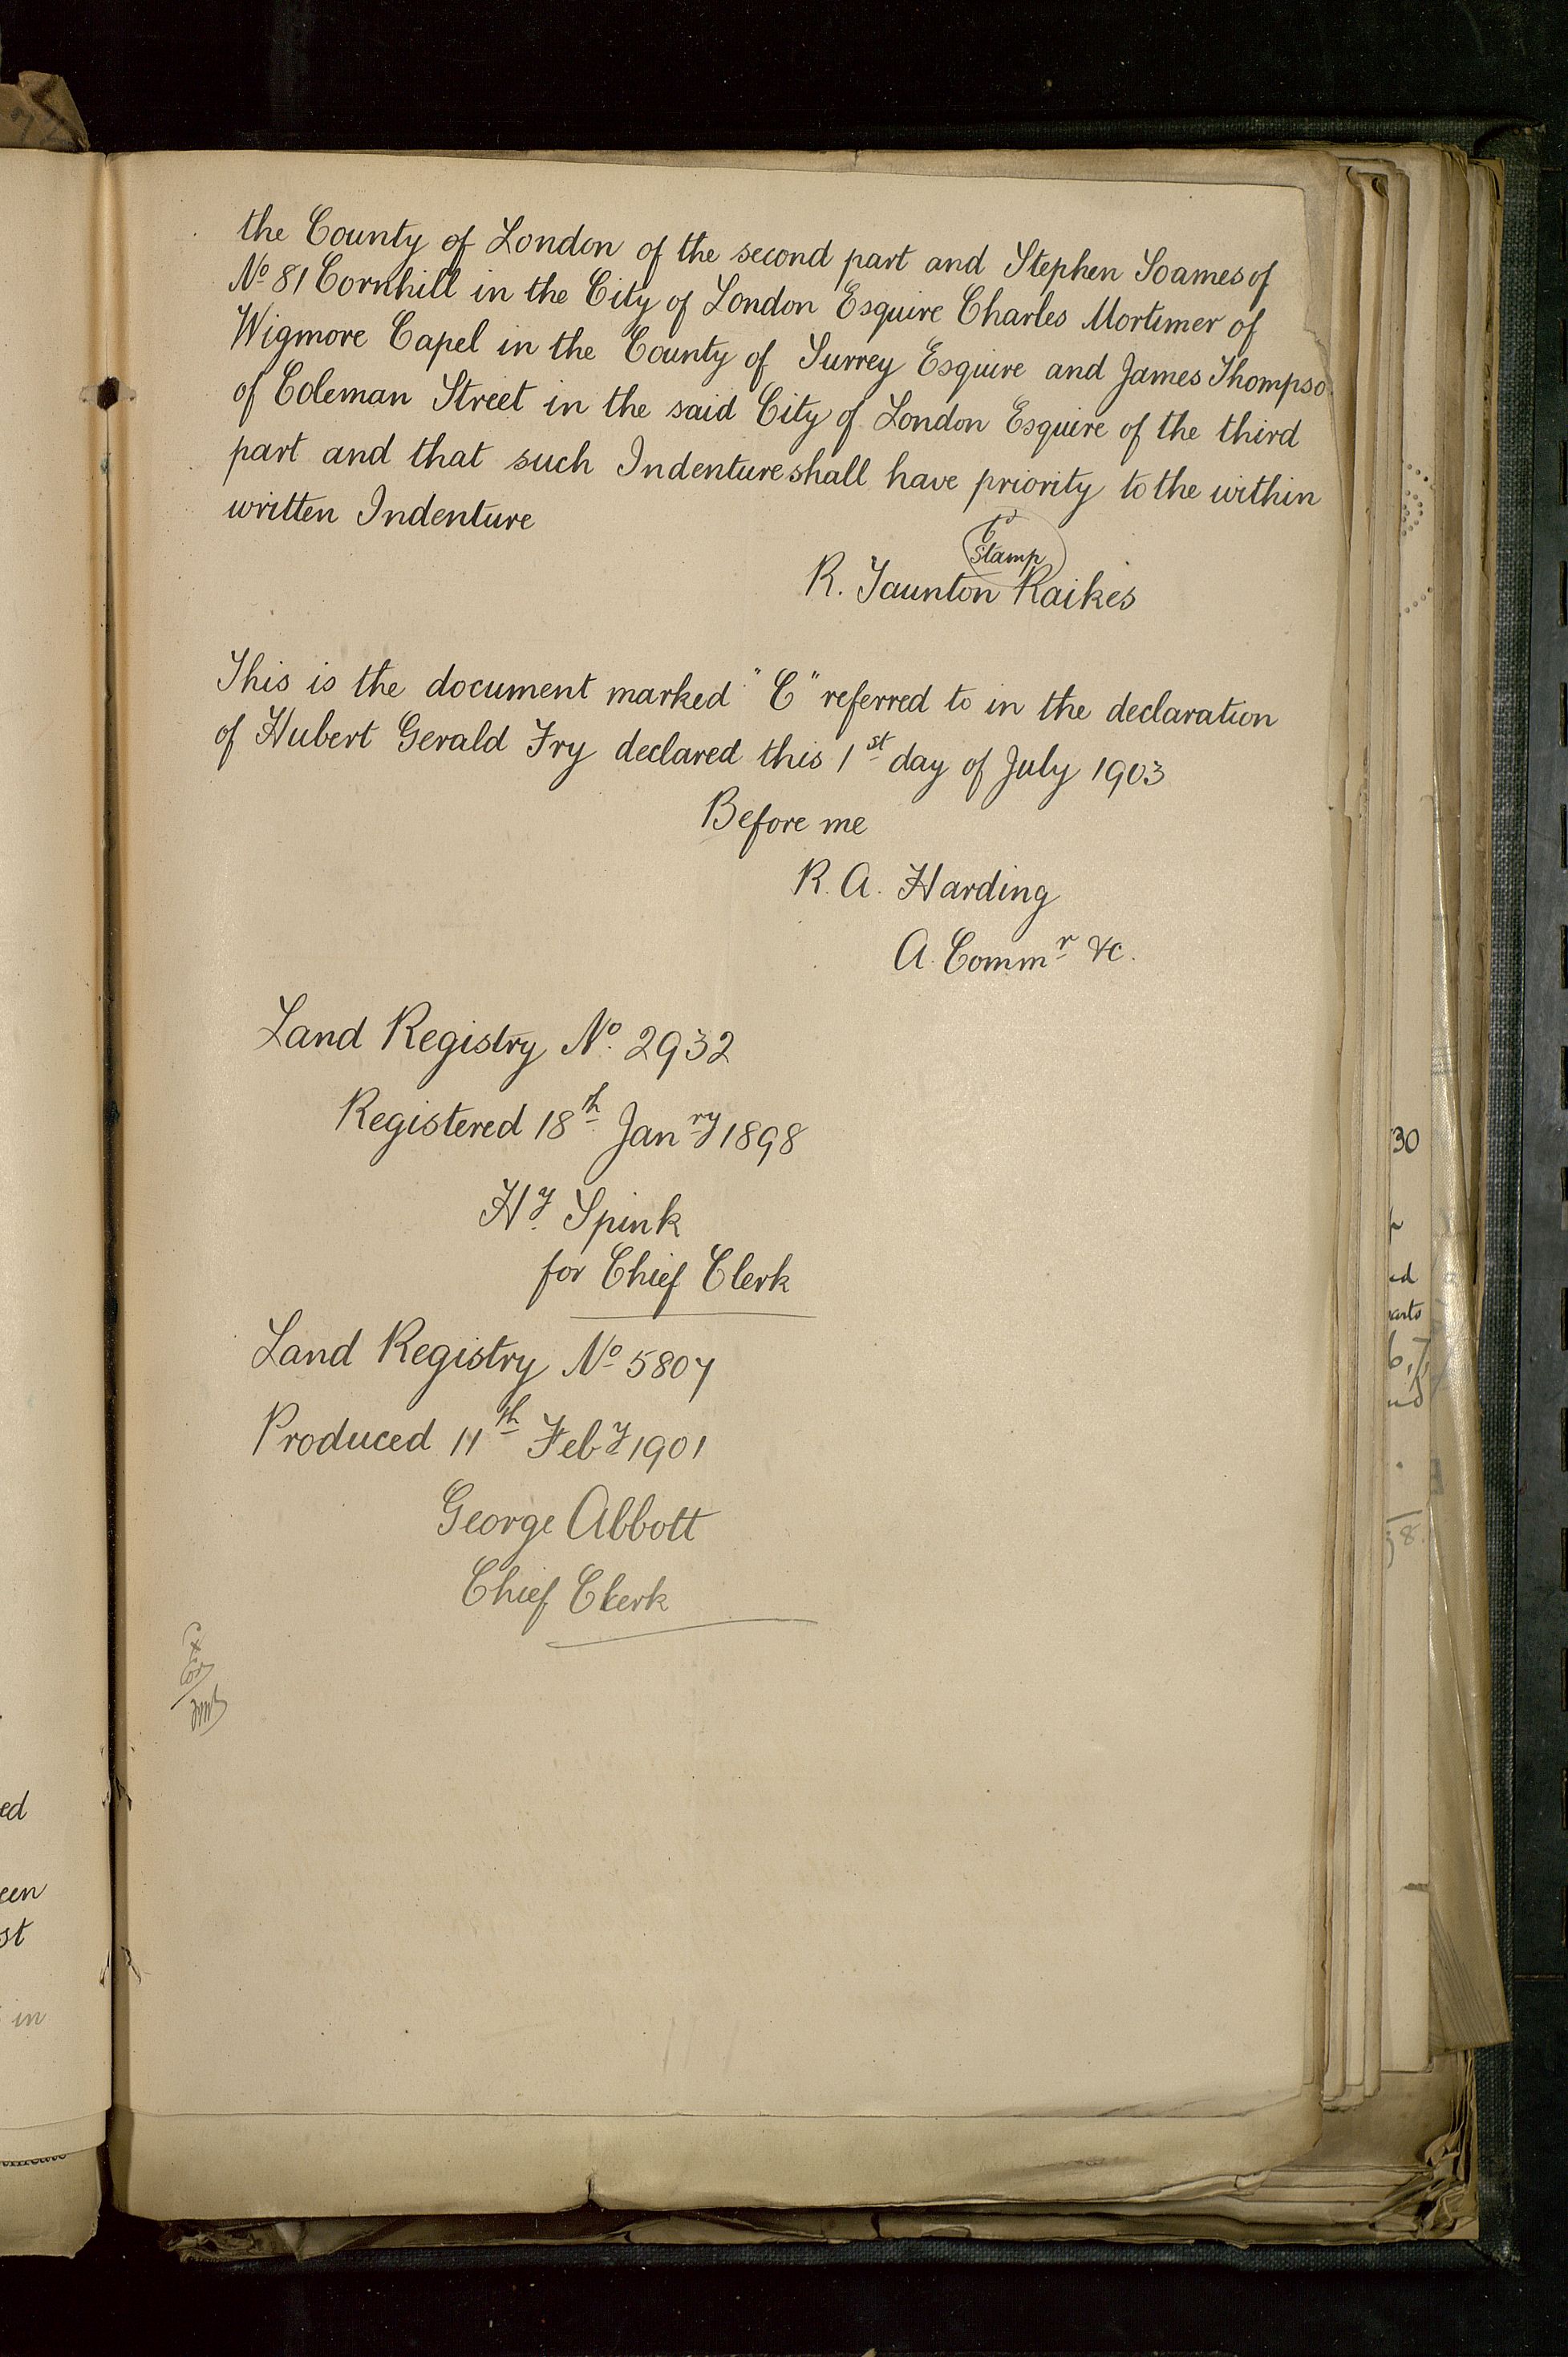 the County of London of the second part and Stephen Soames of
No 81 Cornhill in the City of London Esquire Charles Mortimer of
Wigmore Capel in the County of Surrey Esquire and James Thompso
of Coleman Street in the said City of London Esquire of the third
part and that such Indenture shall have priority to the within
written Indenture
6d
Stamp
R. Taunton Raikes
This is the document marked "C" referred to in the declaration
of Hubert Gerald Fry declared this 1st day of July 1903
Before me
R. A. Harding
A. Commr &c.
Land Registry No. 2932
Registered 18th Janry 1898
Hy. Spink
for Chief Clerk
Land Registry No 5807
Produced 11th Feby 1901
George Abbott
Chief Clerk
ed
een
st
in
30
ed
arts
6,7,
nd
8.